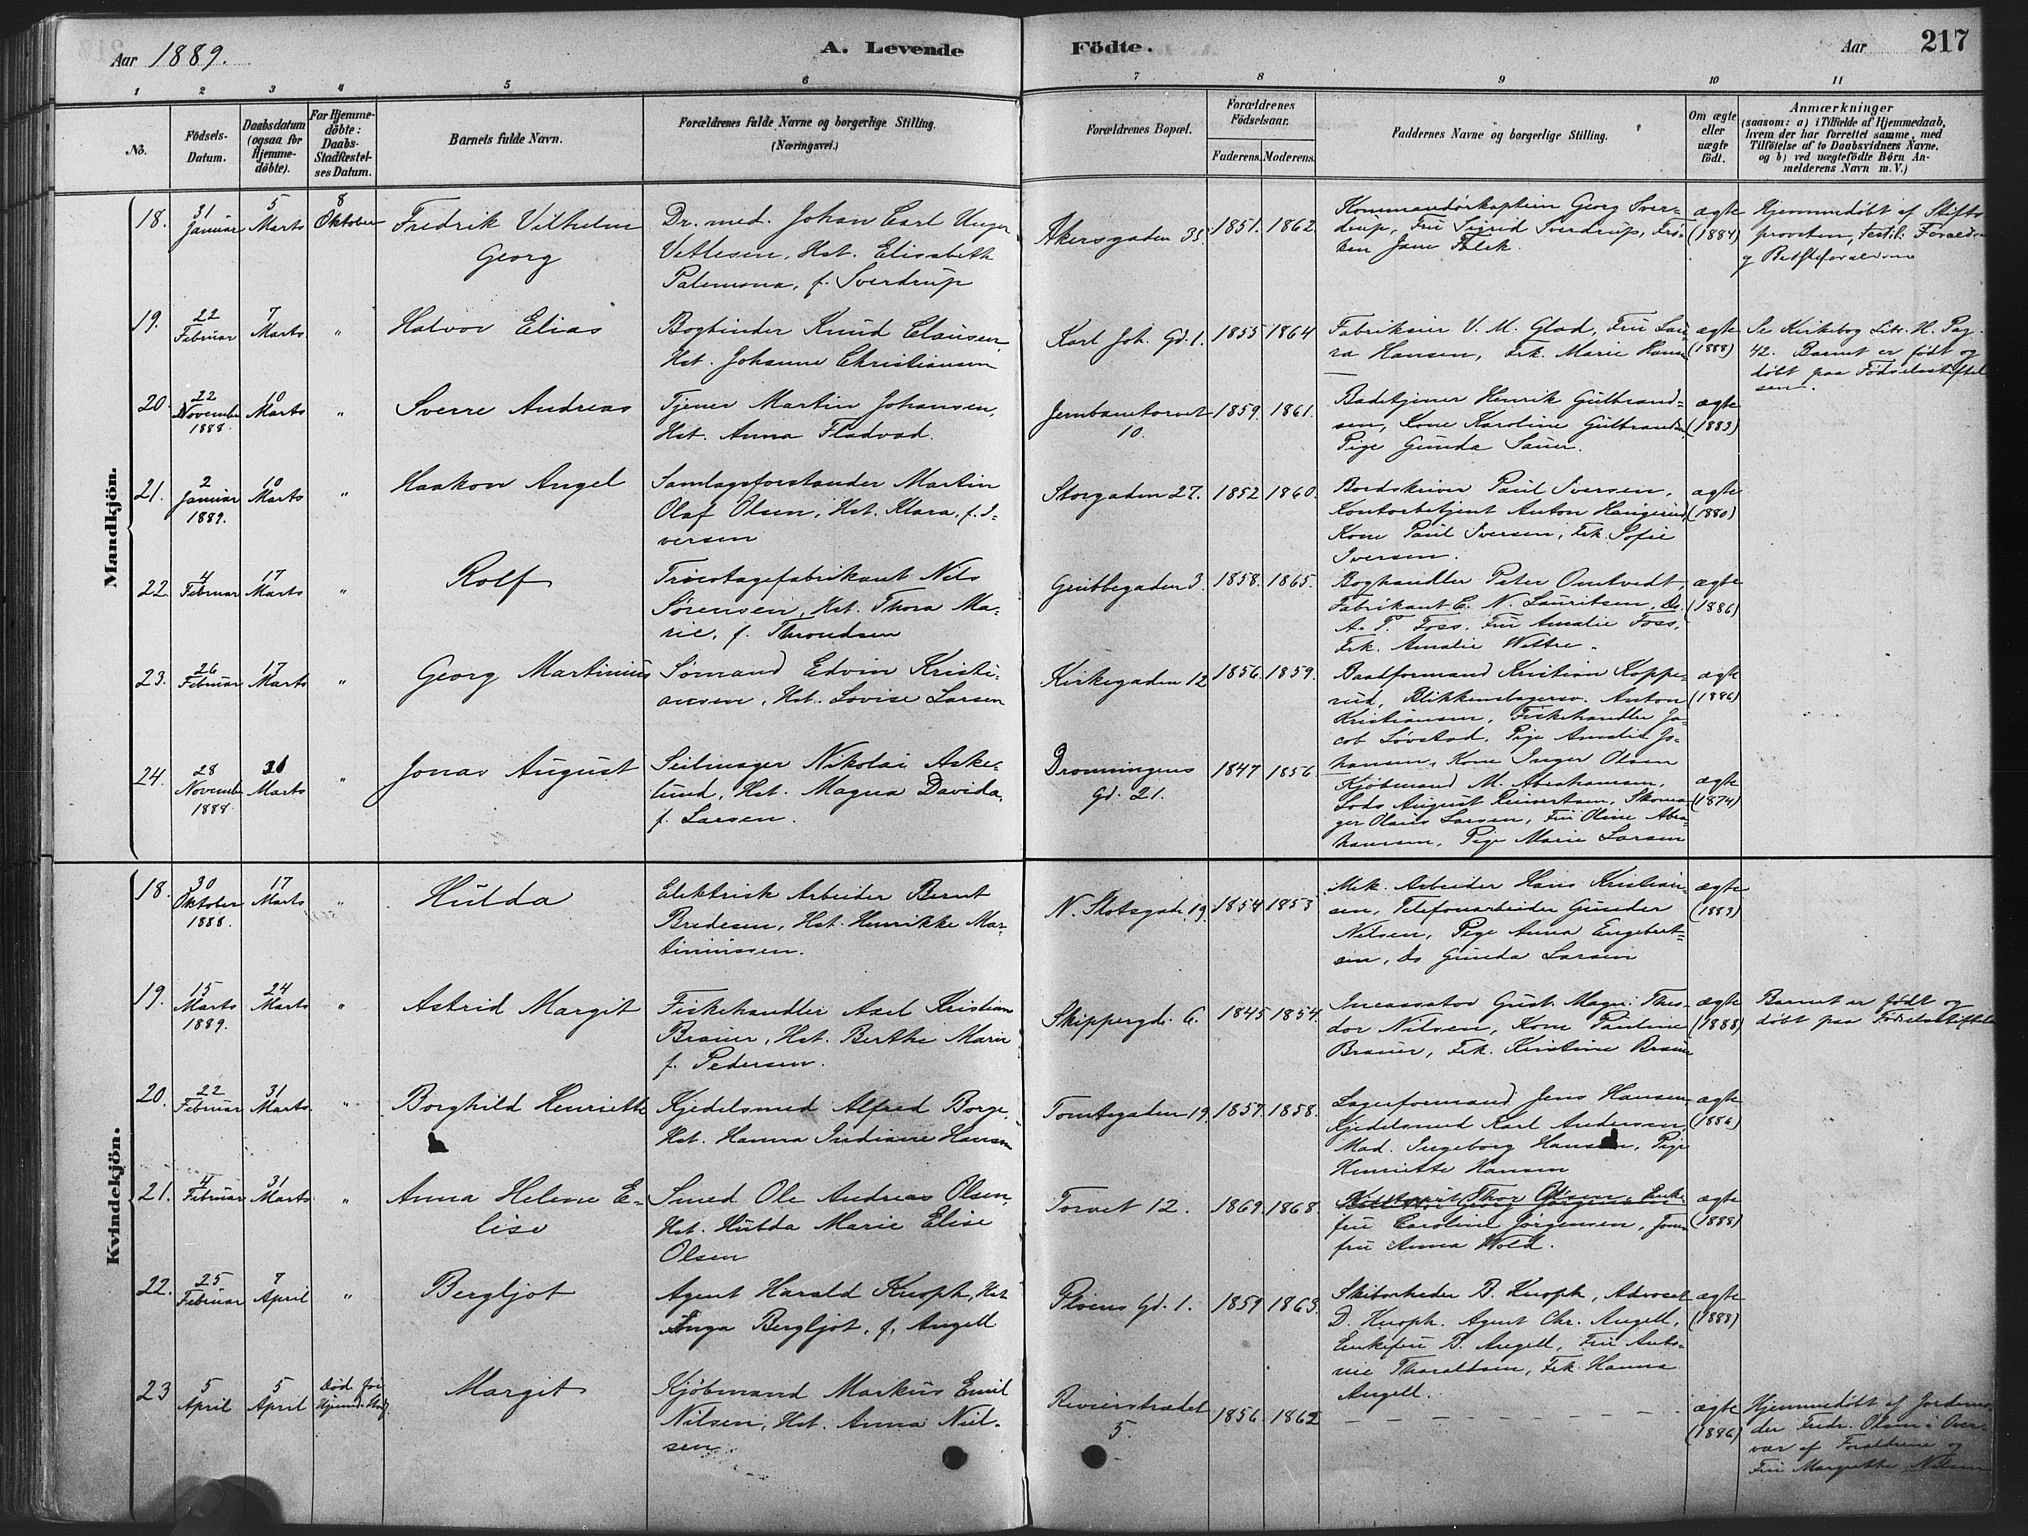 Aar 1889.
A. Levende
Födte.
Aar
217
1 2 3 4 5 6 7 8 9 10 11
No.
Födsels-
Datum.
Daabsdatum
(ogsaa for
Hjemme-
døbte).
For Hjemme-
døbte:
Daabs-
Stadfæstel-
ses Datum.
Barnets fulde Navn.
Forældrenes fulde Navne og borgerlige Stilling.
(Næringsvei.)
Forældrenes Bopæl.
Forældrenes
Födselsaar.
Faderens. Moderens.
Faddernes Navne og borgerlige Stilling.
Om ægte
eller
uægte
födt.
Anmærkninger
(saasom: a) i Tilfælde af Hjemmedaab,
hvem der har forrettet samme, med
Tilföielse af to Daabsvidners Navne,
og b) ved uægtefödte Börn An-
melderens Navn m. V.)
Mandkjön.
18.
31
Januar
5
Marts
8
Oktober
Fredrik Vilhelm
Georg
Dr. med. Johan Carl Unger
Vetlesen, Hst. Elisabeth
Palemona, f. Sverdrup
Akersgaden 35.
1851. 1862.
Kommandørkaptein Georg Sver-
drup, Fru Sigrid Sverdrup, Frø-
ken Jane Falck.
ægte
(1884)
Hjemmedøbt af Stifts
provsten, testib: Foræld
g Bedsteforældrene
19.
22
Februar
7
Marts
"
Halvor Elias
Bogbinder Knud Clausen,
Hst. Johanne Christiansen
Karl Joh. Gd. 1.
1855 1864
Fabrikeier V. M. Glad, Fru Lau-
ra Hansen, Frk. Marie Hansen
ægte
(1888)
Se Kirkebog Litr. H. Pag.
42. Barnet er født og
døbt paa Fødselsstiftel
sen.
20.
22
Novemb
1888.
10
Marts
"
Sverre Andreas
Tjener Martin Johansen,
Hst. Anna Fladvad.
Jernbanetorvet
10.
1859. 1861.
Badetjener Henrik Gulbrand-
sen, Kone Karoline Gulbrandsen,
Pige Gunda Sauer.
ægte
(1883)
21.
2
Januar
1889.
10
Marts
"
Haakon Angel
Samlagsforstander Martin
Olaf Olsen, Hst. Klara, f. I-
versen
Storgaden 27.
1852 1860.
Bordskriver Paul Iversen,
Kontorbetjent Anton Haugerud,
Kone Paul Iversen, Frk. Sofie
Iversen.
ægte
(1880)
22.
4
Februar
17
Marts
"
Rolf
Tricotagefabrikant Nils
Sørensen, Hst. Thora Ma-
rie, f. Throndsen
Grubbegaden 3.
1858. 1865.
Boghandler Peter Omtvedt
Fabrikant C. N. Lauritsen, Do.
A. T. Foss. Fru Amalie Foss,
Frk. Amalie Wettre.
ægte
(1886)
23.
26
Februar
17
Marts
"
Georg Martinius
Sømand Edvin Kristi-
ansen, Hst. Lovise Larsen
Kirkegaden 12
1856. 1859.
Baadformand Kristian Koppe-
rud, Blikkenslagersv. Anton
Kristiansen, Fiskehandler Ja-
cob Løvstad, Pige Amalie Jo-
hansen, Kone Inger Olsen
ægte
(1886)
24.
28
Novemb
1888
31
Marts
"
Jonas August
Seilmager Nikolai Aske-
lund, Hst. Magna Davida,
f. Larsen.
Dronningens
Gd. 21.
1847 1856
Kjøbmand M. Abrahamsen,
Lods August Reinertsen, Skoma-
ger Olaus Larsen, Fru Oline Abra-
hamsen, Pige Marie Larsen
ægte
(1874)
Kvindekjön.
18.
30
Oktober
1888.
17
Marts
"
Hulda
Elektrisk Arbeider Bernt
Bredesen, Hst. Henrikke Mar-
tinussen.
N. Slotsgade 19.
1854 1853
Mek. Arbeider Hans Kristian-
sen, Telefonarbeider Gunder
Nilsen, Pige Anna Engebret-
sen, do Gunda Larsen
ægte
(1883)
19.
15
Marts
1889.
24
Marts
"
Astrid Margit
Fiskehandler Axel Kristian
Brauer, Hst. Berthe Marie
f. Pedersen.
Skippergd. 6.
1845 1854.
Incassator Gust. Magn. Theo-
dor Nilsen, Kone Pauline
Brauer, Frk. Kristine Brauer
ægte
(1888)
Barnet er født og
døbt paa Fødselsstiftels
20.
22
Februar
31
Marts.
"
Borghild Henriette
Kjedelsmed Alfred Borge,
Hst. Hanna Indiane Hansen
Tomtegaden 19.
1857. 1858.
Lagerformand Jens Hansen
Kjedelsmed Karl Andersen,
Mad. Ingeborg Hansen, Pige
Henriette Hansen
ægte
(1886)
21.
4
Februar
31
Marts
"
Anna Helene E-
lise
Smed Ole Andreas Olsen,
Hst. Hulda Marie Elise
Olsen
Torvet 12.
1869. 1868.
Georg Jørgensen, Enke-
fru Caroline Jørgensen, Jom-
fru Anna Wold.
ægte
(1888)
22.
25
Februar
7
April
"
Bergljot
Agent Harald Knoph, Hst
Inga Bergljot, f. Angell
Pløens Gd. 1.
1859 1863.
Skibsrheder B. Knoph, Advocat
D. Knoph. Agent Chr. Angell,
Enkefru B. Angell, Fru Anto-
nie Tharaldsen, Frk. Hanna
Angell.
ægte
(1888)
23
5
April
5
April
Død før
Margit
Kjøbmand Markus Emil
Nilsen, Hst. Anna Niel-
sen
Revierstrædet
5.
1856. 1862
ægte
(1886)
Hjemmedøbt af Jordemo-
der Fredr. Olsen i Over-
vær af Forældrene og
Fru Margrethe Nilsen